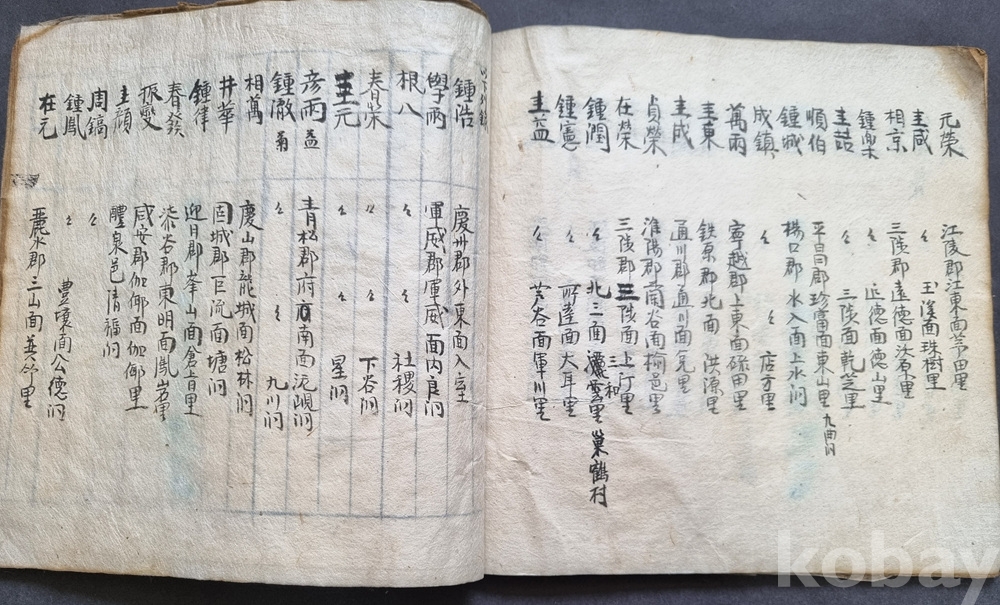 元榮 江陵郡江東面茅田里
圭咸 〻 玉溪面珠樹里
相京 三陟郡遠德面汝老里
鍾樂 〻 近德面德山里
圭喆 〻 三陟面乾芝里
順伯 平昌郡珍富面東山里 九曲洞
鍾城 楊口郡水入面上水洞
成鎮 〻 〻 店方里
萬雨 寧越郡上東面碌田里
圭東 鉄原郡北面洪源里
圭成 通川郡通川面元里
貞榮 淮陽郡蘭谷面楡邑里
在榮 三陟郡三陟面上汀里
鍾潤 〻 北三面三和里 巢鶴村
鍾憲 〻 所達面大耳里
圭益 〻 芦谷面軍川里
鍾浩 慶州郡外東面入室
學雨 軍威郡軍威面內良洞
根八 〻 〻 社稷洞
春榮 〻 〻 下谷洞
圭元 〻 〻 星洞
彦雨 益 青松郡府南面泥峴洞
鍾澈 〻 〻 九川洞
相萬 慶山郡龍城面松林洞
井華 固城郡巨流面塘洞
鍾律 迎日郡峯山面倉旨里
春發 漆谷郡東明面鳳岩里
振燮 咸安郡伽倻面伽倻里
圭顔 醴泉邑清福洞
周鎬 〻
鍾鳳 〻 豊壤面公德洞
在元 麗水郡三山面